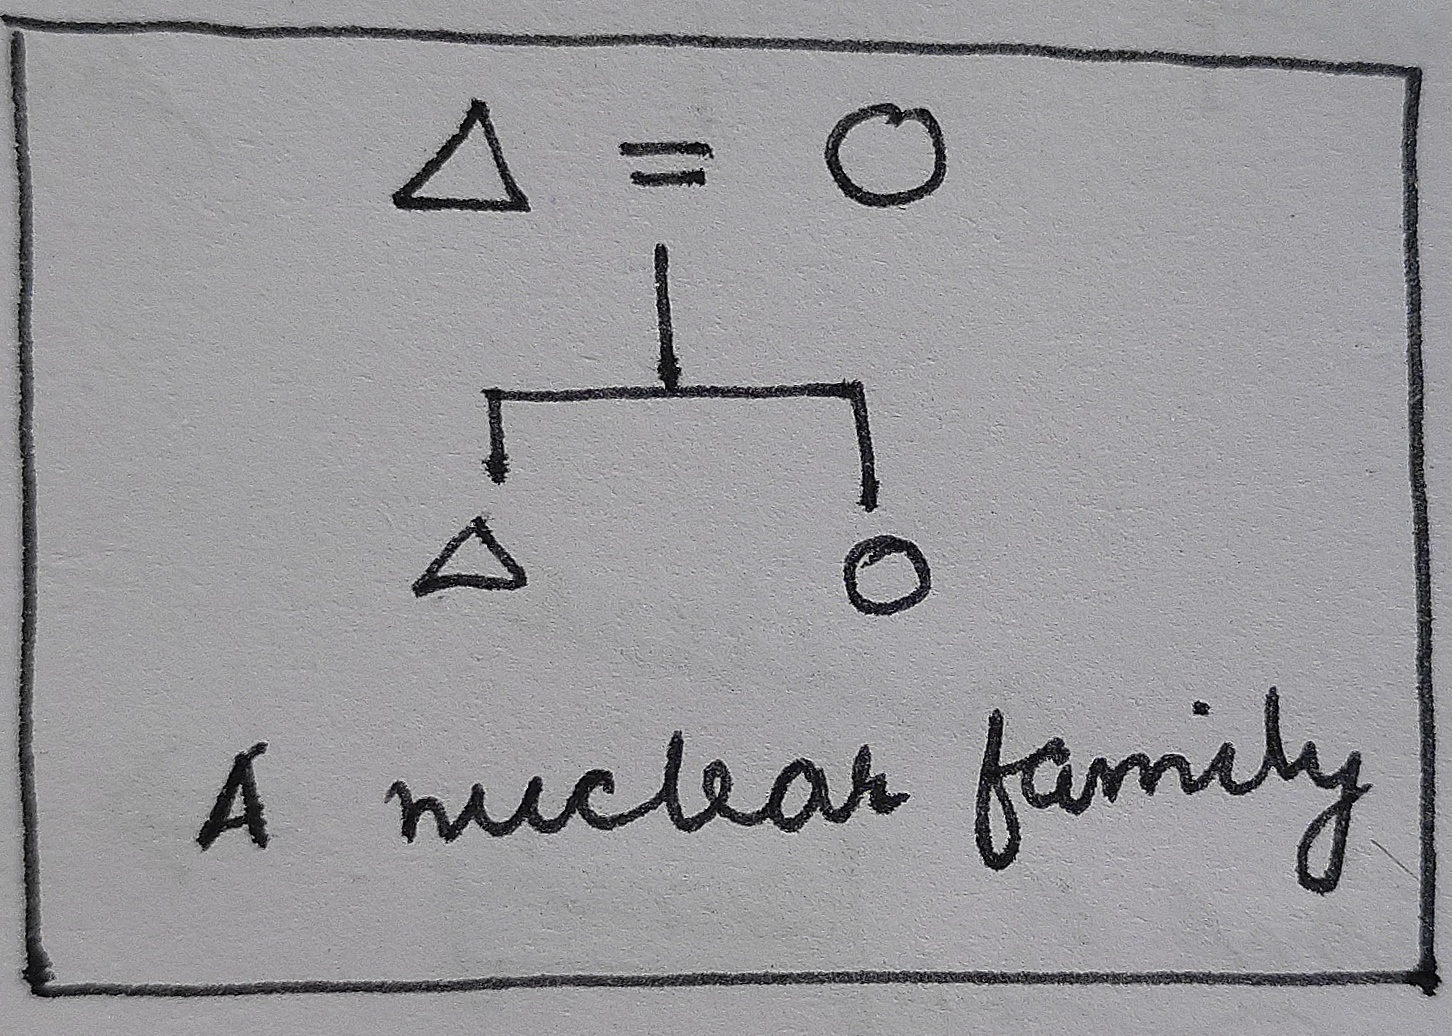 A nuclear family